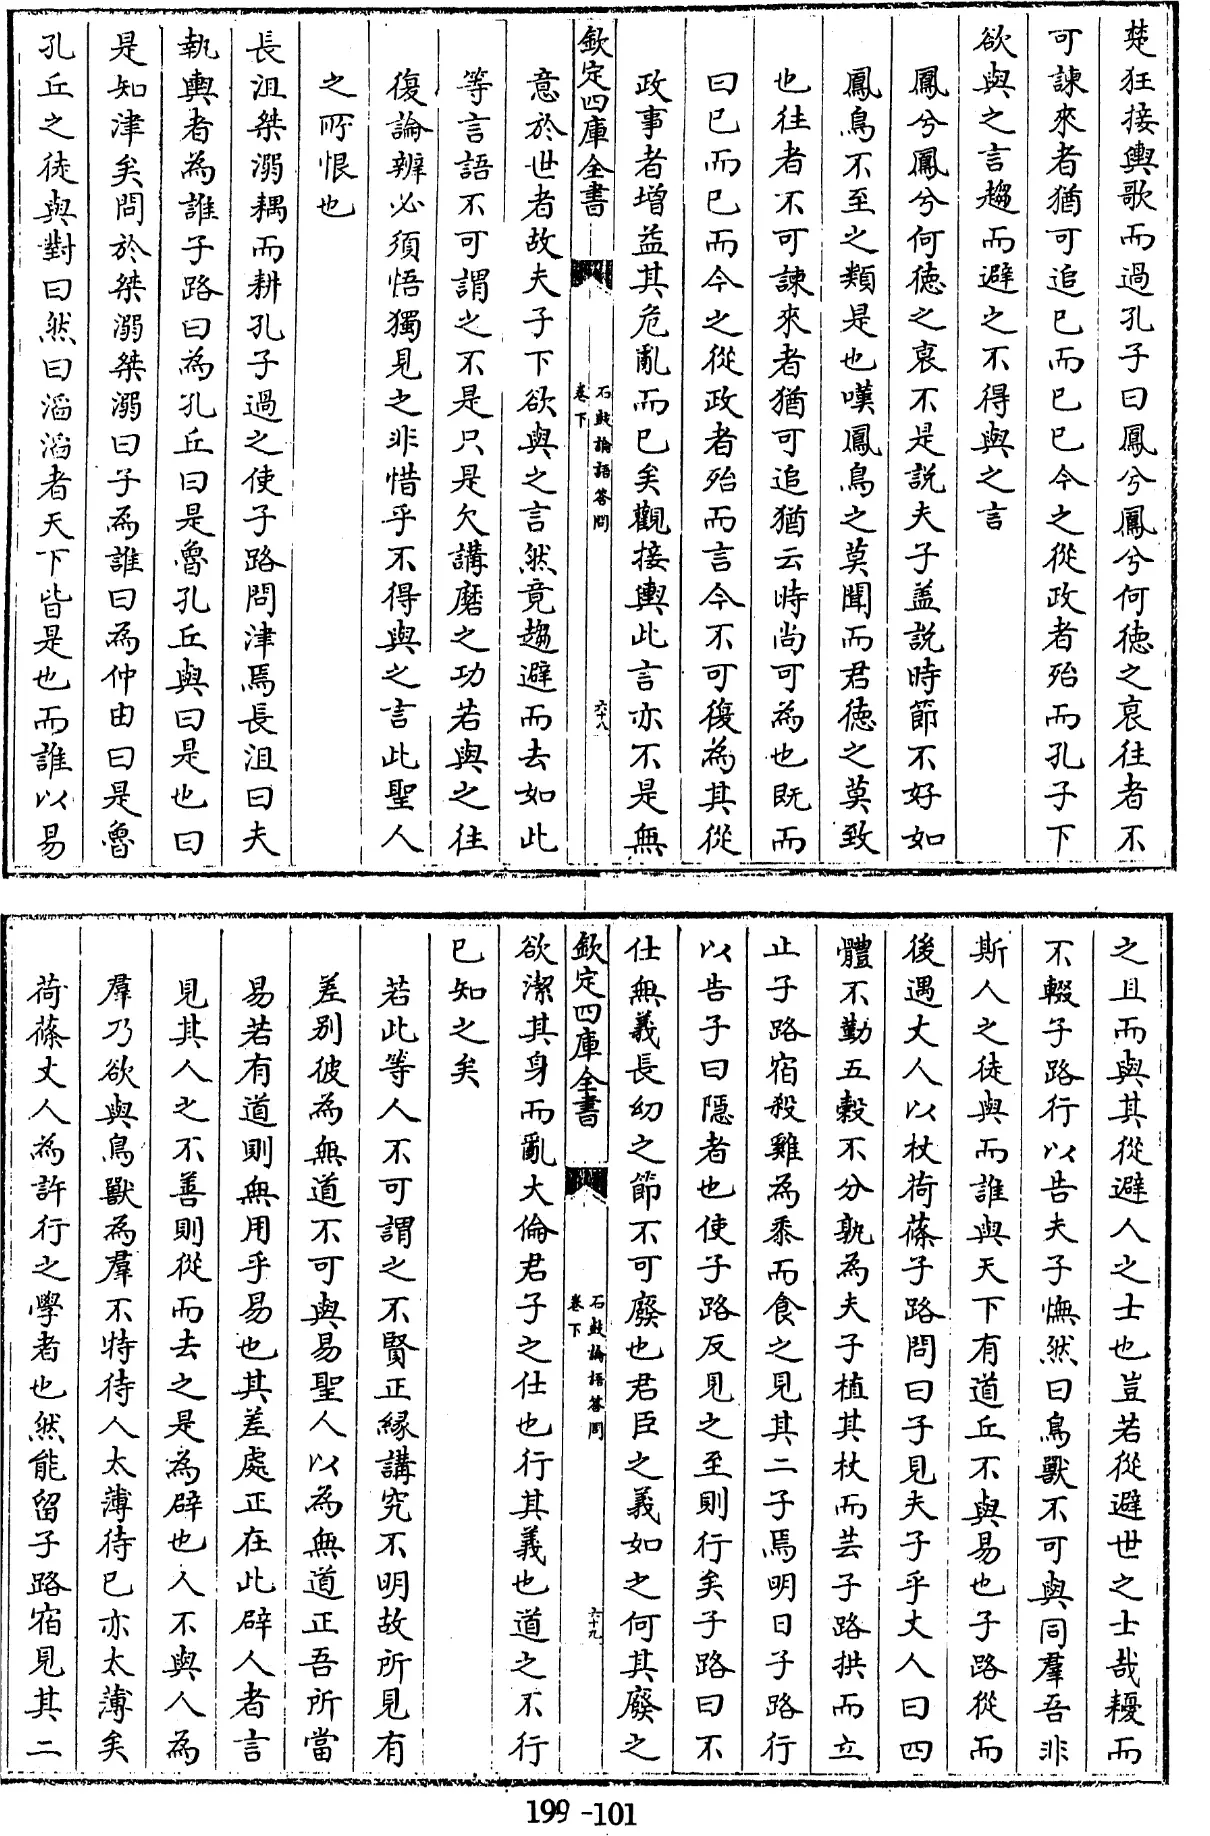 楚狂接輿歌而過孔子曰鳳兮鳳兮何徳之衰往者不
可諫來者猶可追已而已已今之從政者殆而孔子下
欲與之言趨而避之不得與之言
鳳兮鳳兮何徳之衰不是説夫子盖説時節不好如
鳳鳥不至之類是也嘆鳳鳥之莫聞而君徳之莫致
也往者不可諫來者猶可追猶云時尚可為也既而
曰已而已而今之從政者殆而言今不可復為其從
政事者增益其危亂而已矣觀接輿此言亦不是無
欽定四庫全書
石鼓論語答問
卷下
六十八
意於世者故夫子下欲與之言然竟趨避而去如此
等言語不可謂之不是只是欠講磨之功若與之往
復論辨必須悟獨見之非惜乎不得與之言此聖人
之所恨也
長沮桀溺耦而耕孔子過之使子路問津焉長沮曰夫
執輿者為誰子路曰為孔丘曰是魯孔丘與曰是也曰
是知津矣問於桀溺桀溺曰子為誰曰為仲由曰是魯
孔丘之徒與對曰然曰滔滔者天下皆是也而誰以易
之且而與其從避人之士也豈若從避世之士哉耰而
不輟子路行以告夫子憮然曰鳥獸不可與同羣吾非
斯人之徒與而誰與天下有道丘不與易也子路從而
後遇丈人以杖荷蓧子路問曰子見夫子乎丈人曰四
體不勤五穀不分孰為夫子植其杖而芸子路拱而立
止子路宿殺雞為黍而食之見其二子焉明日子路行
以告子曰隠者也使子路反見之至則行矣子路曰不
仕無義長幼之節不可廢也君臣之義如之何其廢之
欽定四庫全書
石鼓論語答問
卷下
六十九
欲潔其身而亂大倫君子之仕也行其義也道之不行
已知之矣
若此等人不可謂之不賢正縁講究不明故所見有
差别彼為無道不可與易聖人以為無道正吾所當
易若有道則無用乎易也其差處正在此辟人者言
見其人之不善則從而去之是為辟也人不與人為
羣乃欲與鳥獸為羣不特待人太薄待已亦太薄矣
荷蓧丈人為許行之學者也然能留子路宿見其二
199-101